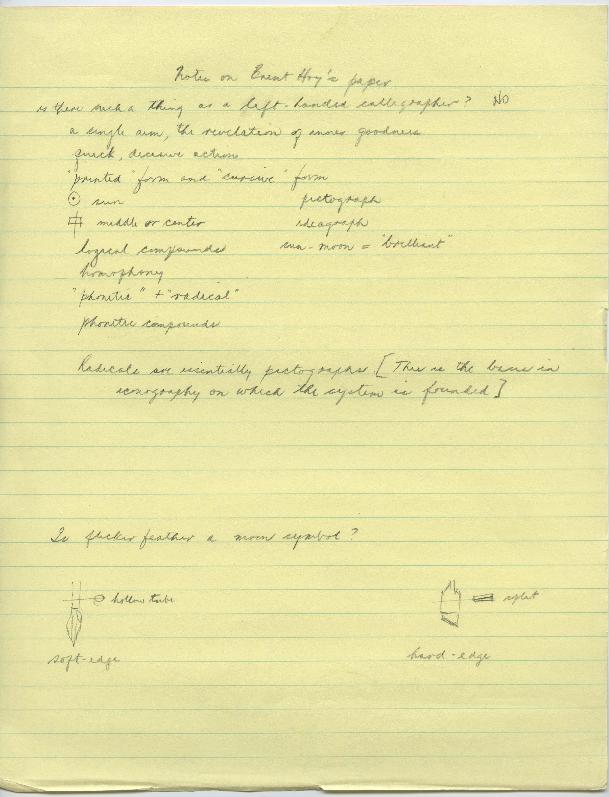 Notes on Brent Hoy's paper
is there such a thing as a left-handed callegrapher? NO
a single arm, the revelation of inner goodness
quick, decisive action
"printed" form and "cursive" form
sun pictograph
middle or center ideagraph
logical compounds sun-moon = "brilliant"
homophony
"phonetic" + "radical"
phonetic compounds
Radicals are essentially pictographs [This is the basis in
iconography on which the system is founded]
Is flicker feather a moon symbol?
hollow tube
splut
soft-edge
hard-edge